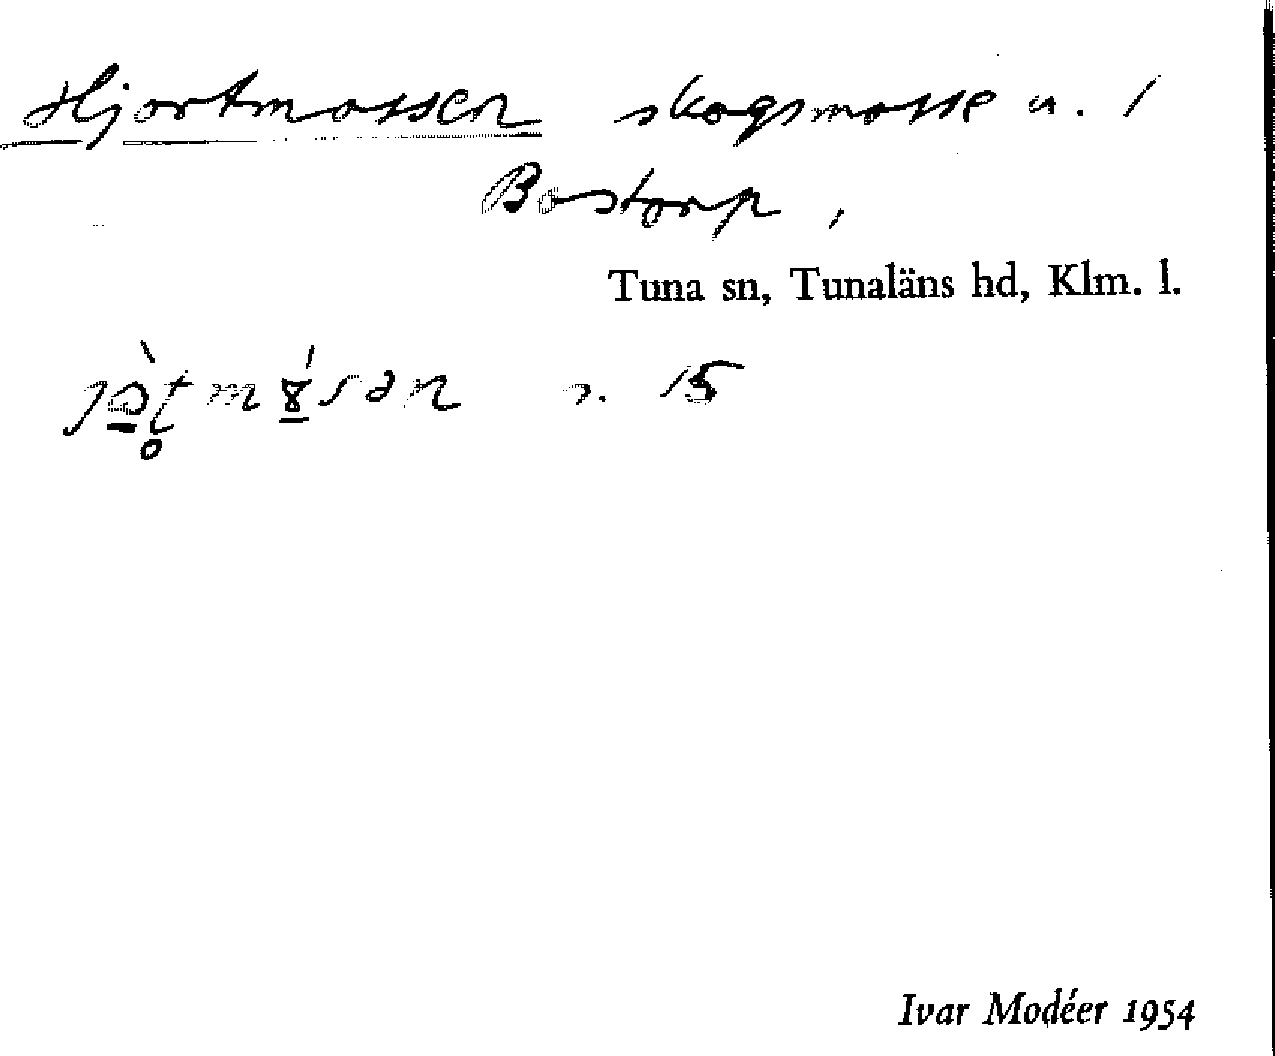 Hjortmossen skogsmosse u. /
Bostorp,
Tuna sn, Tunaläns hd, Klm. l.
s. 15
Ivar Modéer 1954